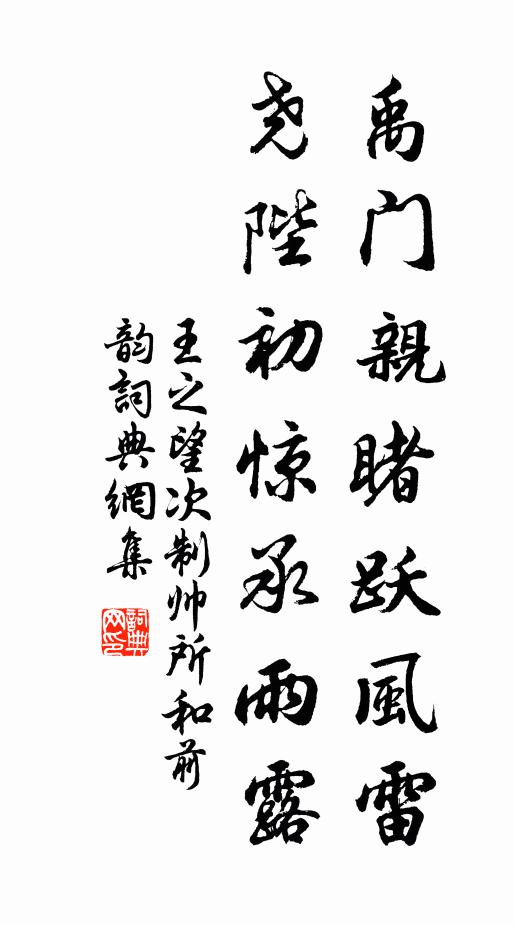 禹门親睹跃風雷
尧陛初惊承雨露
王之望次制帅所和前
韵詞典網集
詞典網印